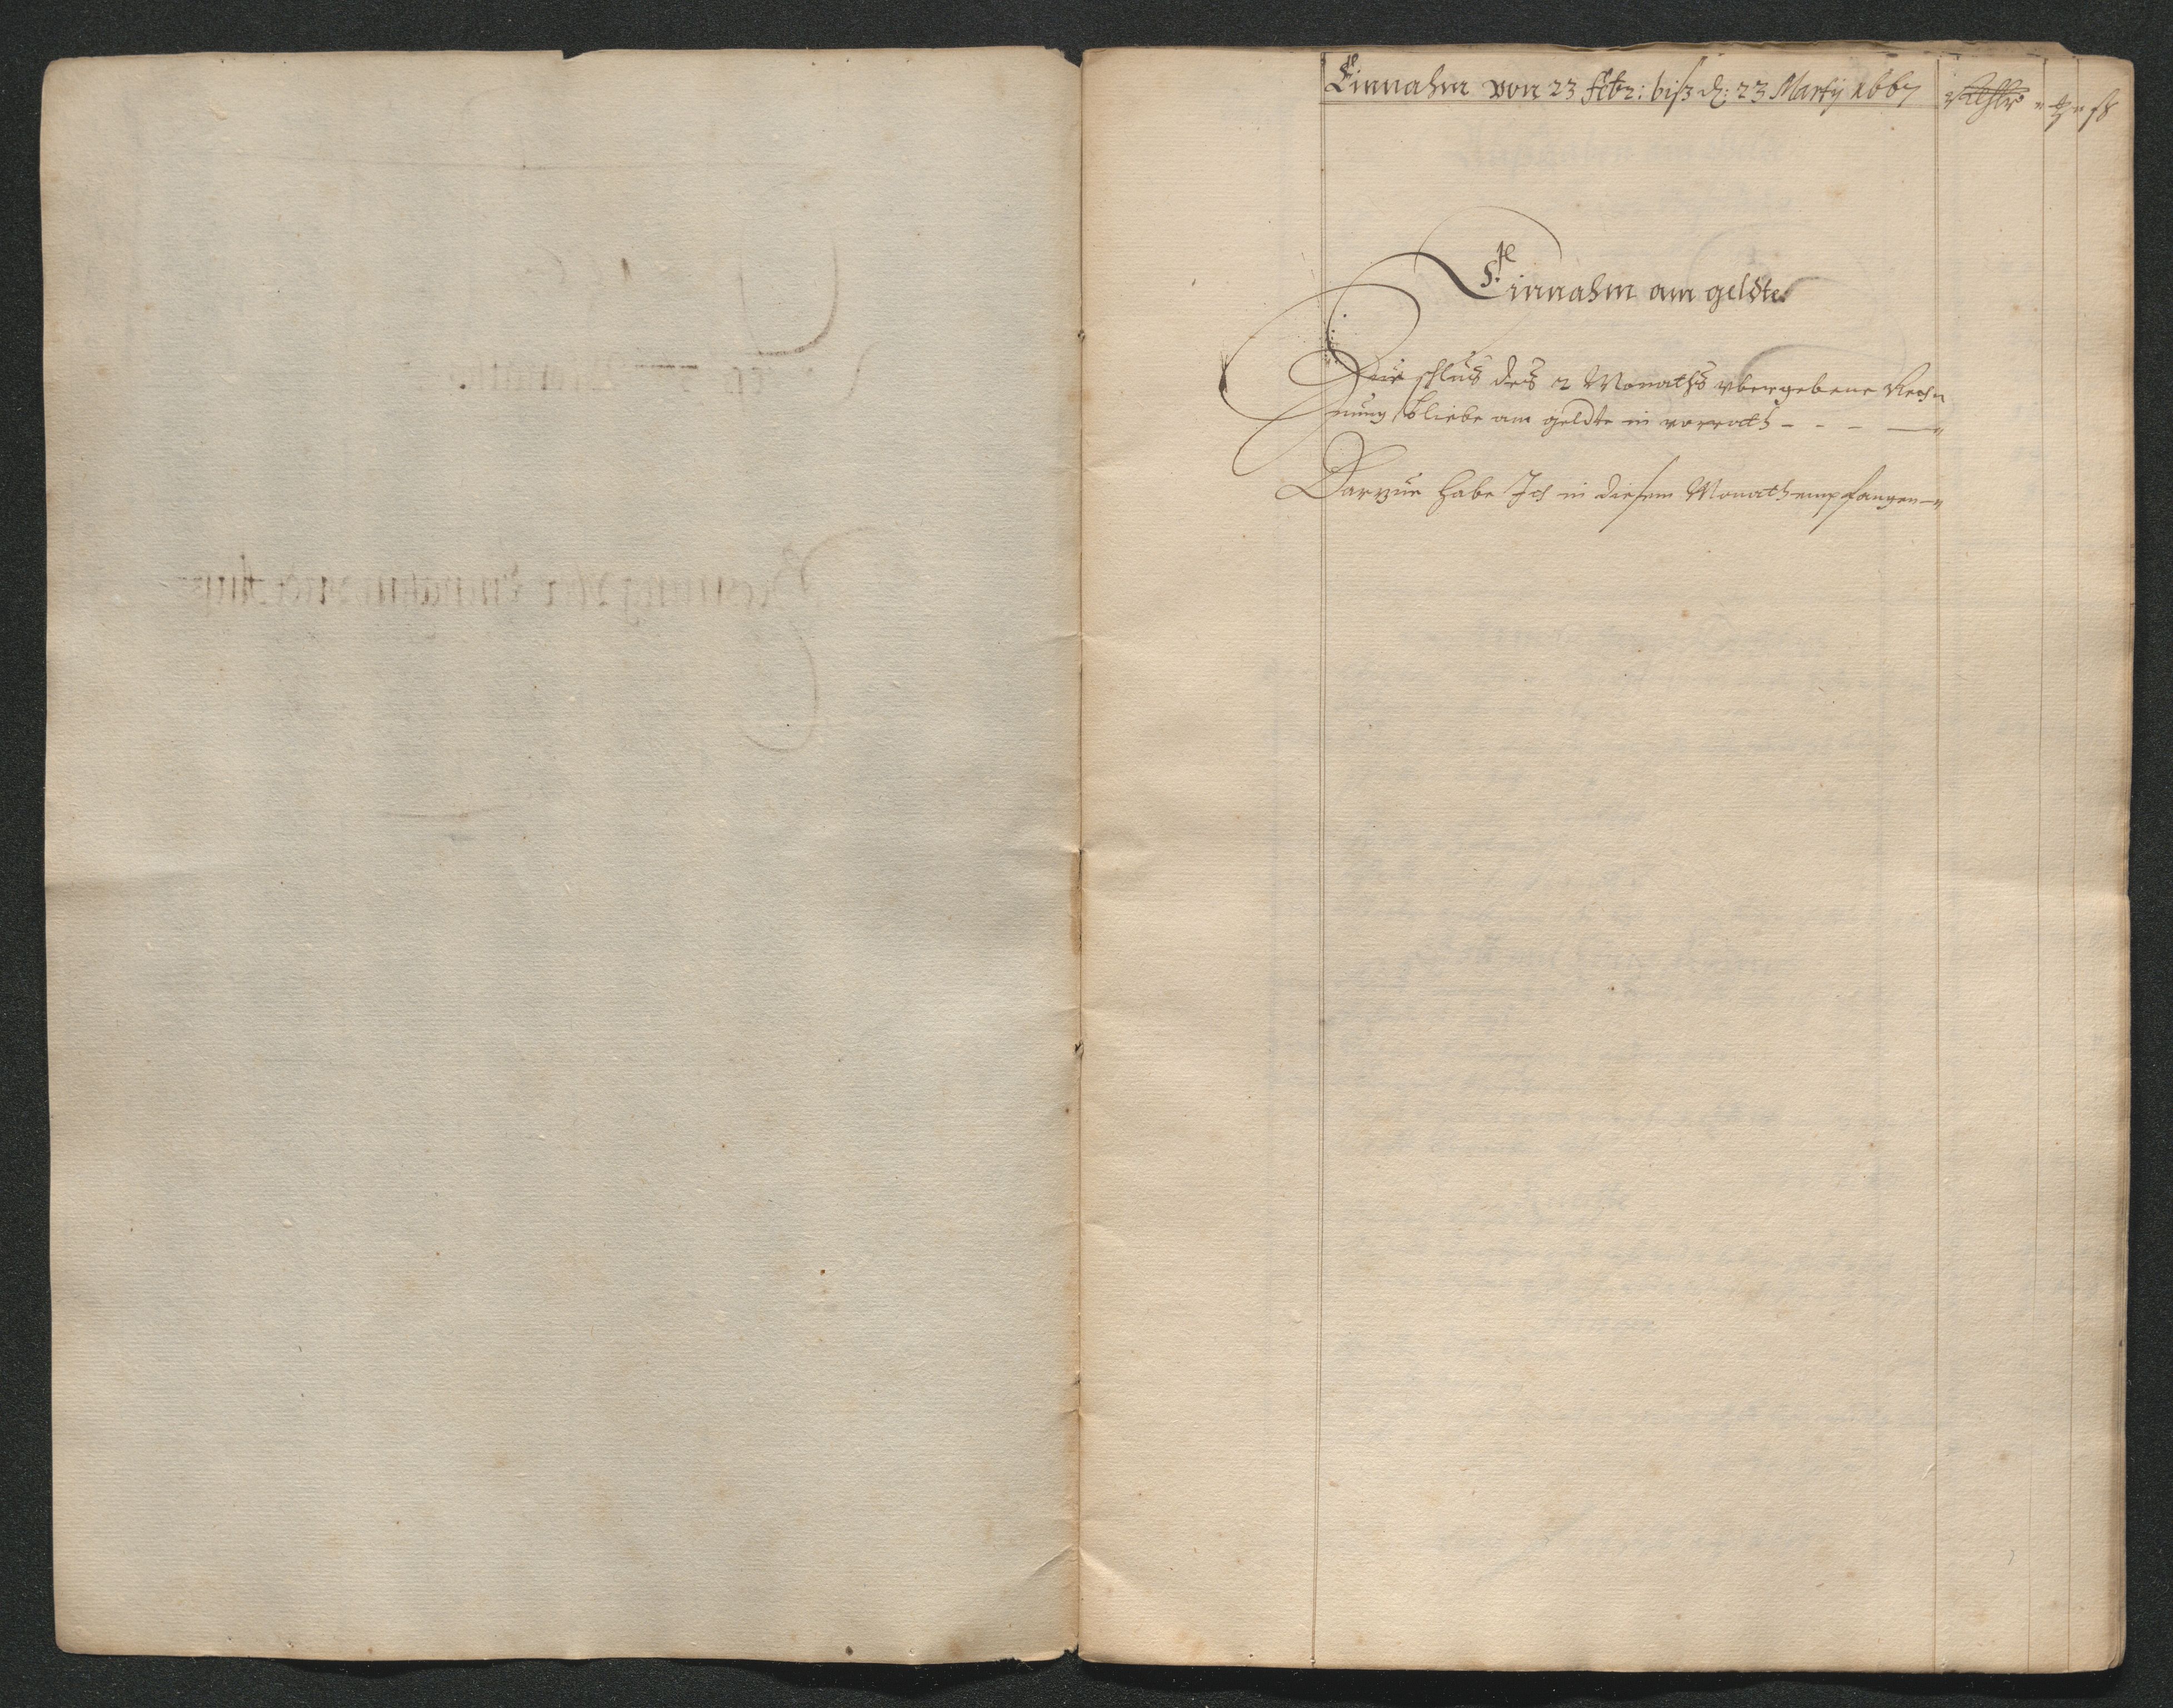 Einnahm von 23 Febr: biß d: 23 Martij 1667
Rthlr ß
Einnahm am geldte
Beÿ schlus des 2 Monaths vbergebene Rech
nung bliebe am geldte in vorrath - - - —
Darzue habe Ich in diesem Monath empfangen —